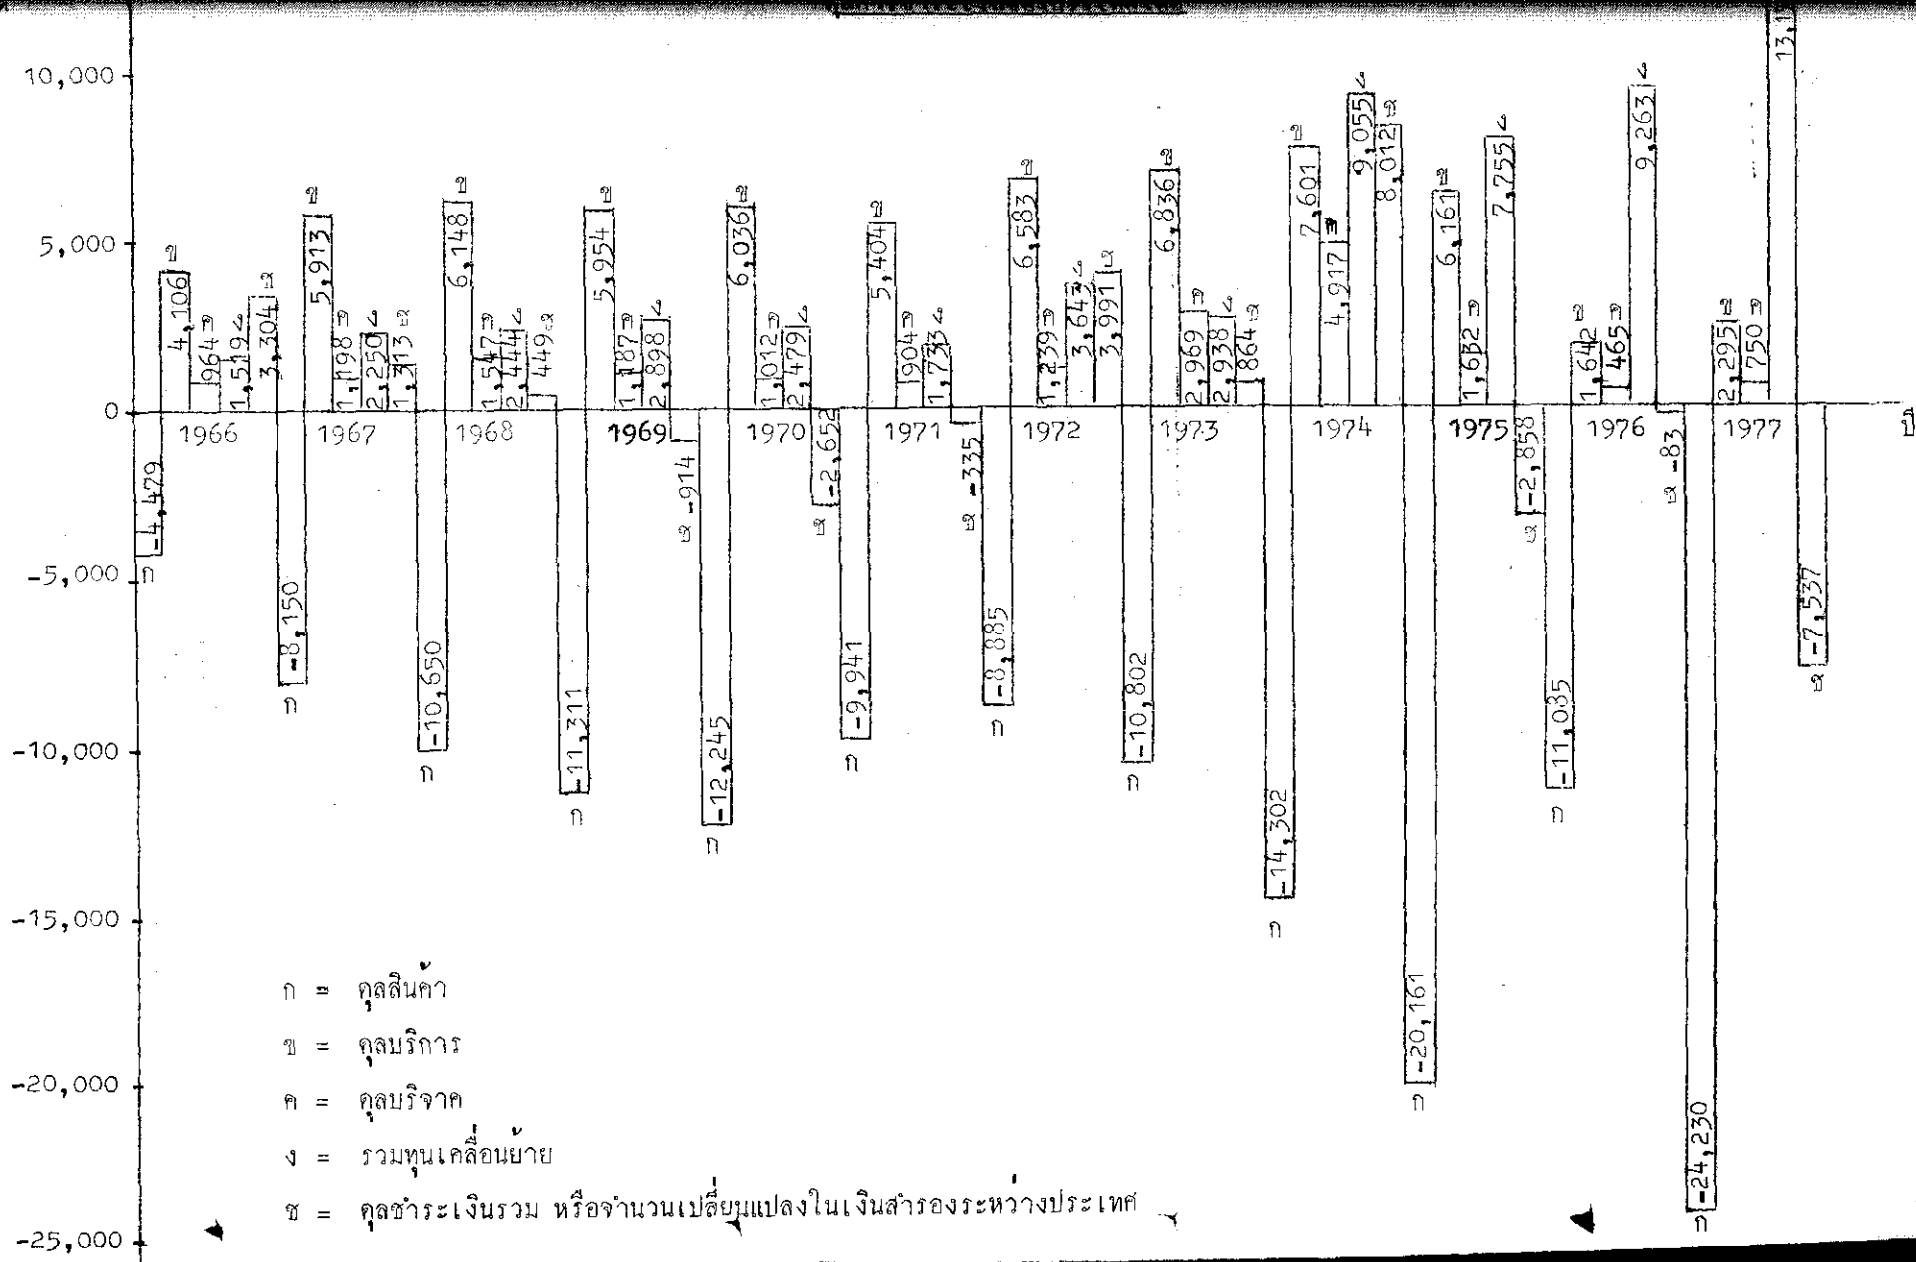 10,000
5,000
0
-5,000
-10,000
-15,000
-20,000
-25,000
1966 1967 1968 1969 1970 1971 1972 1973 1974 1975 1976 1977 ปี
ก -4,479
ข 4,106
ค 964
ง 1,519
ช 3,304
ก -8,150
ข 5,913
ค 1,198
ง 2,250
ช 1,313
ก -10,650
ข 6,148
ค 1,547
ง 2,444
ช 449
ก -11,311
ข 5,954
ค 1,187
ง 2,898
ช -914
ก -12,245
ข 6,036
ค 1,012
ง 2,479
ช -2,652
ก -9,941
ข 5,404
ค 904
ง 1,733
ช -335
ก -8,885
ข 6,583
ค 1,239
ง 3,643
ช 3,991
ก -10,802
ข 6,836
ค 2,969
ง 2,938
ช 864
ก -14,302
ข 7,601
ค 4,917
ง 9,055
ช 8,012
ก -20,161
ข 6,161
ค 1,632
ง 7,755
ช -2,858
ก -11,085
ข 1,642
ค 465
ง 9,263
ช -83
ก -24,230
ข 2,295
ค 750
ช -7,537
ก = ดุลสินค้า
ข = ดุลบริการ
ค = ดุลบริจาค
ง = รวมทุนเคลื่อนย้าย
ช = ดุลชำระเงินรวม หรือจำนวนเปลี่ยนแปลงในเงินสำรองระหว่างประเทศ